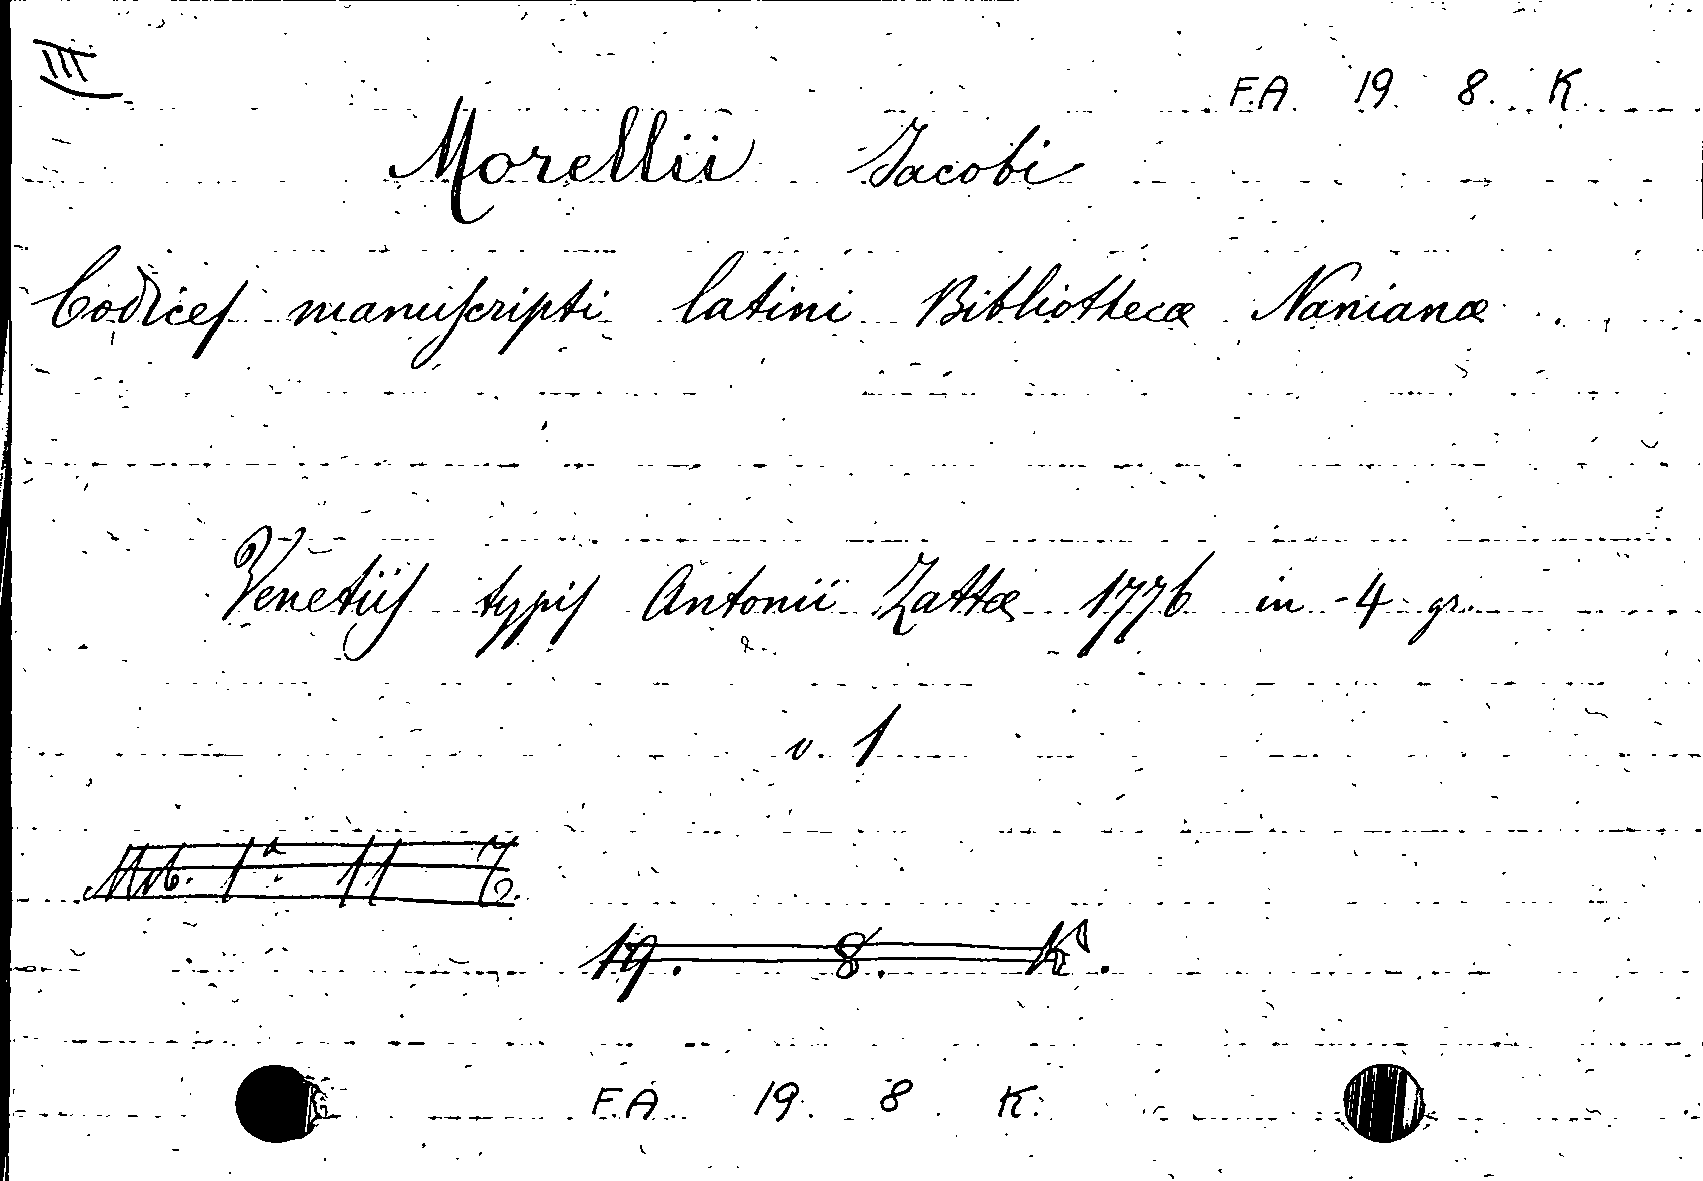 III
F.A. 19. 8. K.
Morellii Jacobi
Codices manuscripti latini Bibliothecæ Nanianæ
Venetiis typis Antonii Zattæ 1776 in 4 gr.
v. 1
1ª 11
19. 8. K.
F.A. 19. 8. K.